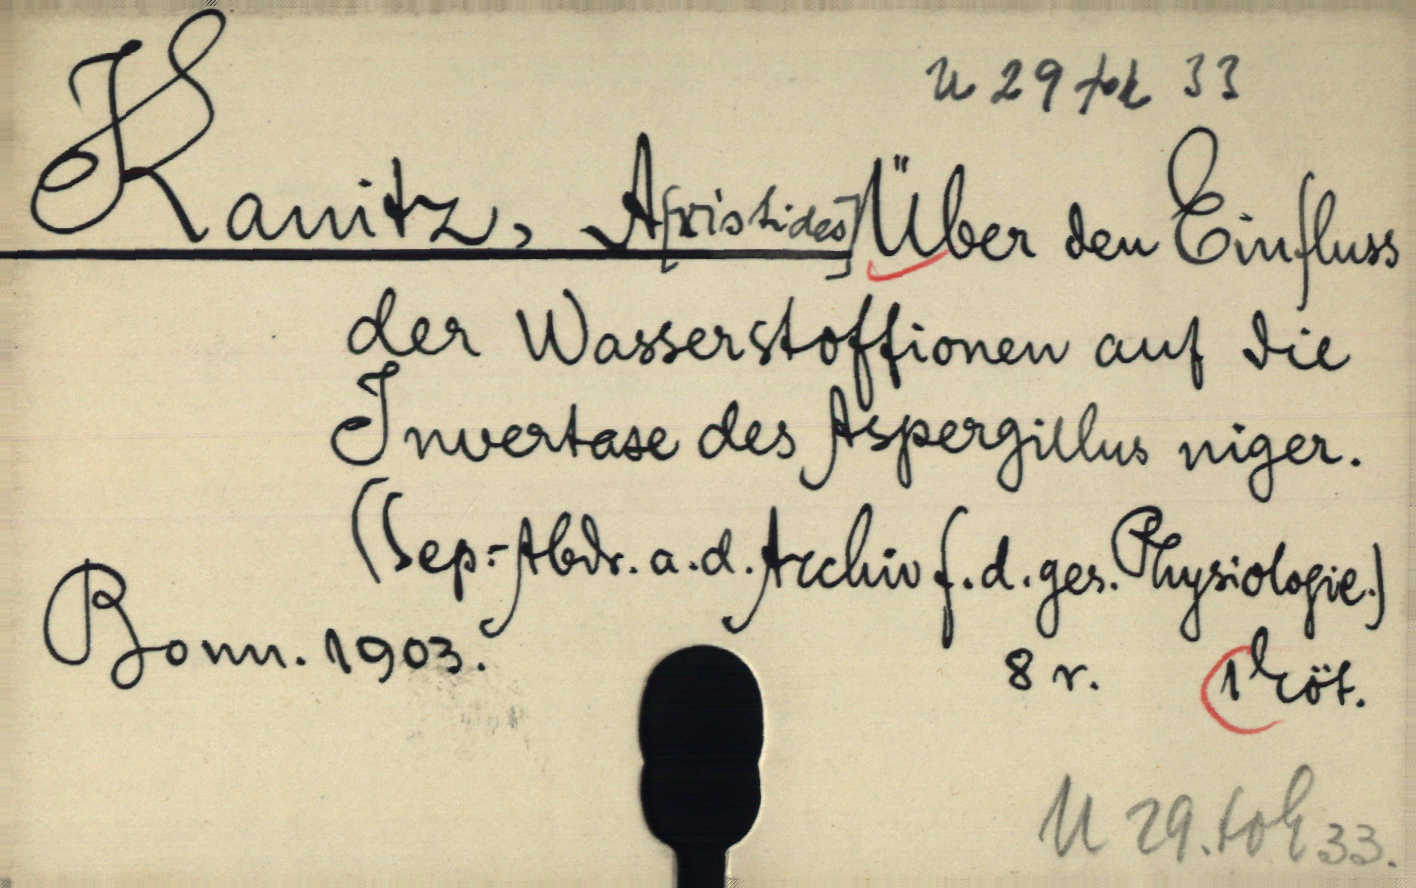 U 29 tok 33
Kanitz, A[ristides] Über den Einfluss
der Wasserstoffionen auf die
Invertase des Aspergillus niger.
(Sep.-Abdr. a. d. Archiv f. d. ges. Physiologie.)
Bonn. 1903.
8 r. 1 köt.
U 29. tok 33.